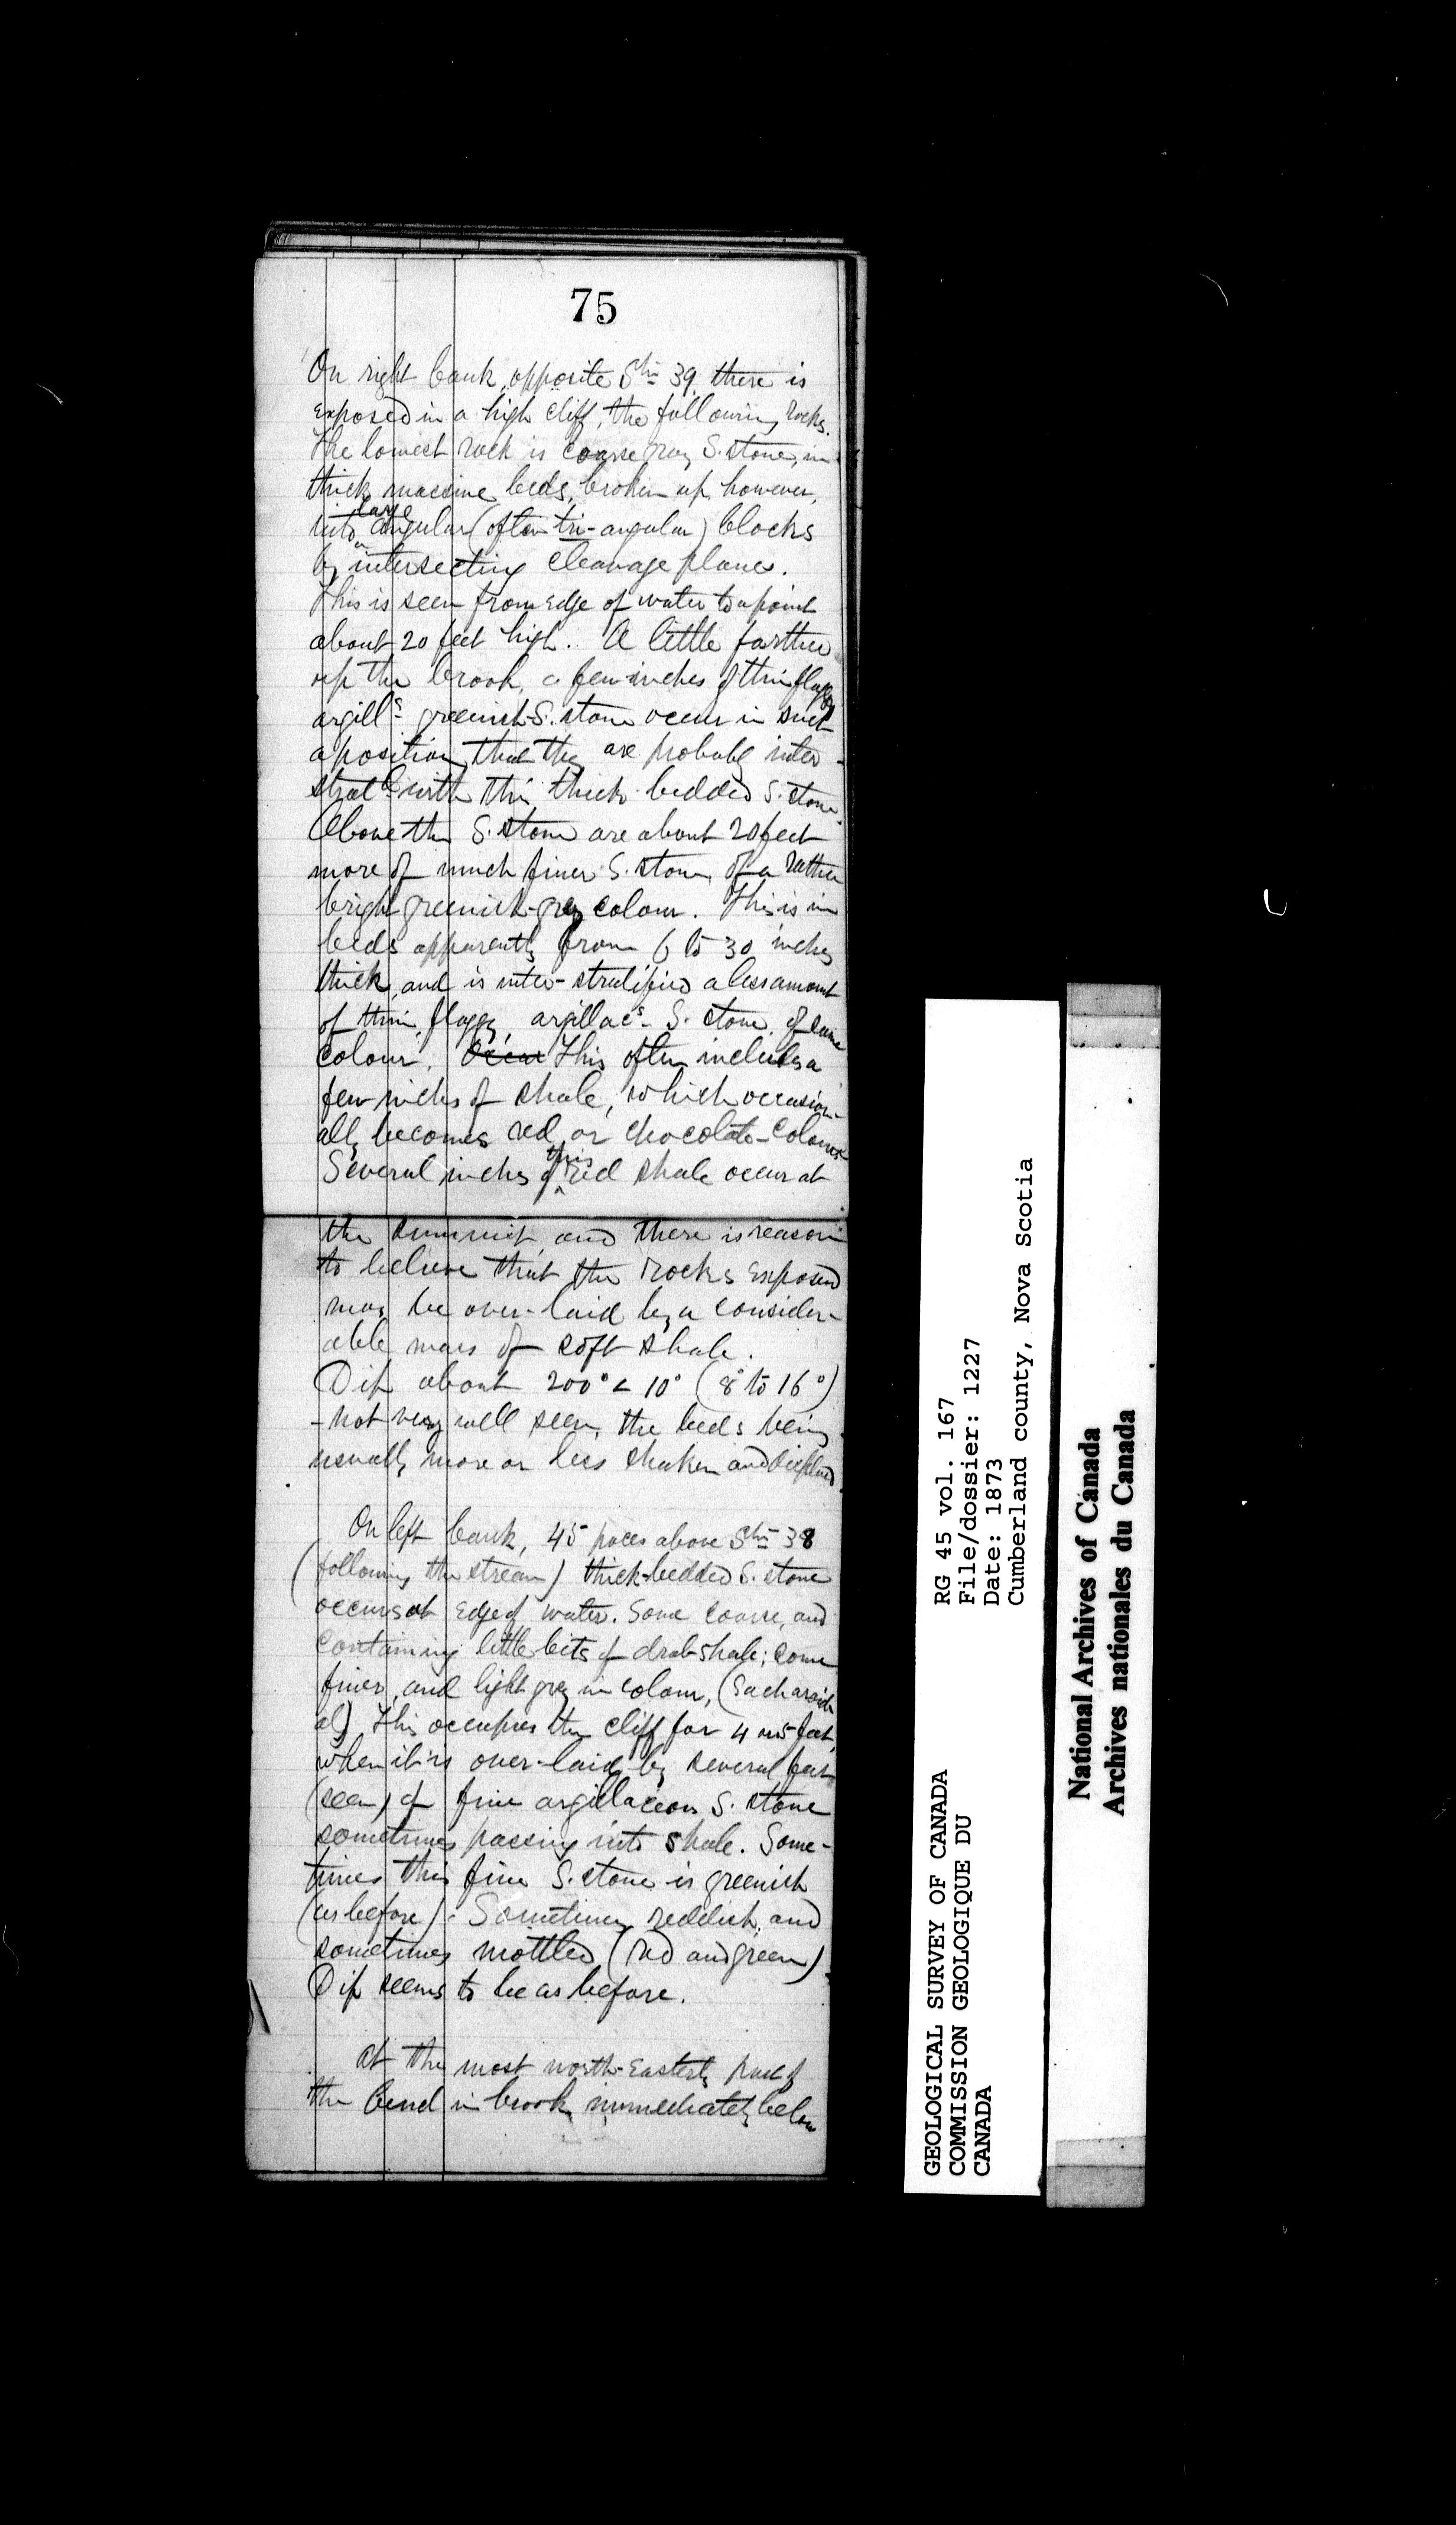 75
On right bank, opposite Stn 39, there is
exposed in a high cliff, the following rocks.
The lowest rock is coarse gray S. stone, in
thick massive beds, broken up, however,
into large angular (often tri-angular) blocks
by intersecting cleavage planes.
This is seen from edge of water to a point
about 20 feet high. A little farther
up the brook, a few inches of thin flaggy
argills greenish S. stone occur in such
a position that they are probably inter-
stratd with this thick bedded S. stone.
Above the S. stone are about 20 feet
more of much finer S. stone, of a rather
bright greenish-grey colour. This is in
beds apparently from 6 to 30 inches
thick, and is inter-stratified a less amount
of thin, flaggy, argillacs- S. stone, of same
colour. Occur This often includes a
few inches of shale, which occasion-
ally becomes red or chocolate-coloured
Several inches of this red shale occur at
the summit and there is reason
to believe that the rocks exposed
may be over-laid by a consider-
able mass of soft shale.
Dip about 200° < 10° (8° to 16°)
- not very well seen, the beds being
usually more or less shaken and displaced.
On left bank, 45 paces above Stn 38
(following the stream) thick-bedded S. stone
occurs at edge of water. Some coarse, and
containing little bits of drab shale; some
finer, and light grey in colour, (Sacharoid-
al) This occupies the cliff for 4 or 5 feet,
when it is over-laid by several feet
(seen) of fine argillaceous S. stone
sometimes passing into shale. Some-
times this fine S. stone is greenish
(as before). Sometimes reddish, and
sometimes mottled (red and green)
Dip seems to be as before.
At the most north-easterly part of
the bend in brook, immediately below
GEOLOGICAL SURVEY OF CANADA
COMMISSION GEOLOGIQUE DU
CANADA
RG 45 vol. 167
File/dossier: 1227
Date: 1873
Cumberland county, Nova Scotia
National Archives of Canada
Archives nationales du Canada